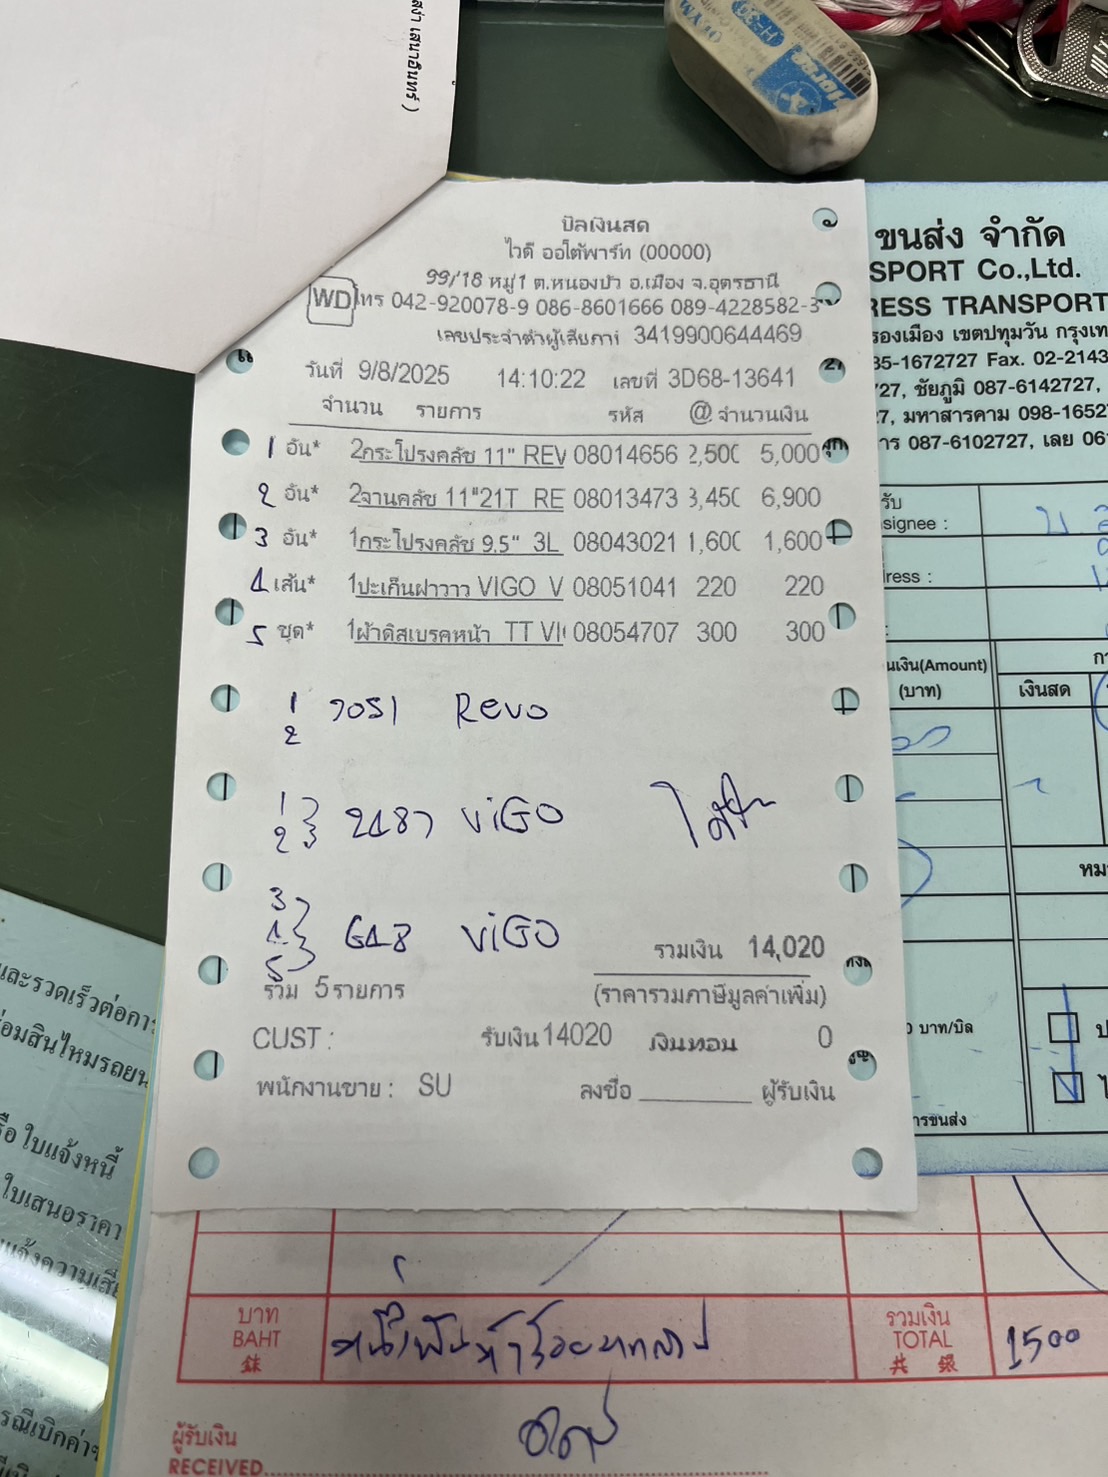 สง่า เสนาอินทร์ )
บิลเงินสด
ไวดี ออโต้พาร์ท (00000)
99/18 หมู่1 ต.หนองบัว อ.เมือง จ.อุดรธานี
WD โทร 042-920078-9 086-8601666 089-4228582-3
เลขประจำตัวผู้เสียภาษี 3419900644469
วันที่ 9/8/2025 14:10:22 เลขที่ 3D68-13641
จำนวน รายการ รหัส @ จำนวนเงิน
1 อัน* 2กระโปรงคลัช 11" REV 08014656 2,500 5,000
2 อัน* 2จานคลัช 11"21T RE 08013473 3,450 6,900
3 อัน* 1กระโปรงคลัช 9.5" 3L 08043021 1,600 1,600
4 เส้น* 1ปะเก็นฝาวาว VIGO V 08051041 220 220
5 ชุด* 1ผ้าดิสเบรคหน้า TT VI 08054707 300 300
1 7051 Revo
2
1
2 2487 ViGO
3
4 648 ViGO
5
รวมเงิน 14,020
รวม 5รายการ (ราคารวมภาษีมูลค่าเพิ่ม)
CUST : รับเงิน14020 เงินทอน 0
พนักงานขาย : SU ลงชื่อ ผู้รับเงิน
ขนส่ง จำกัด
SPORT Co.,Ltd.
RESS TRANSPORT
รองเมือง เขตปทุมวัน กรุงเท
85-1672727 Fax. 02-2143
727, ชัยภูมิ 087-6142727,
7, มหาสารคาม 098-1652
าร 087-6102727, เลย 06
รับ
signee :
ress :
นเงิน(Amount)
(บาท)
เงินสด
หมา
0 บาท/บิล
ารขนส่ง
และรวดเร็วต่อการ
ร่อมสินไหมรถยน
รือ ใบแจ้งหนี้
ใบเสนอราคา
แจ้งความเสีย
รณีเบิกค่า
บาท
BAHT
銖
หนึ่งพันห้าร้อยบาทถ้วน
รวมเงิน
TOTAL
共 銀
1500
ผู้รับเงิน
RECEIVED